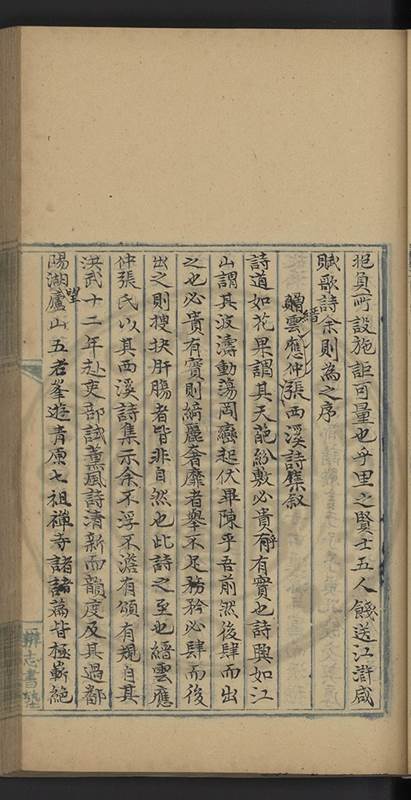 抱負所設施詎可量也乎里之賢士五人餞送江滸咸
賦歌詩余則為之序
贈縉雲應仲張西溪詩集叙
詩道如花果謂其天葩紛敷必貴有實也詩興如江
山謂其波濤動蕩岡巒起伏畢陳乎吾前然後肆而出
之也必貴有實則綺麗奢靡者舉不足務矜必肆而後
出之則搜抉肝腸者皆非自然也此詩之至也縉雲應
仲張氏以其西溪詩集示余不浮不澹有頌有規自其
洪武十二年赴吏部試薰風詩清新而韻度及其過鄱
陽湖望廬山五老峯遊青原七祖禪寺諸諸篇皆極嶄絕
辨志書塾